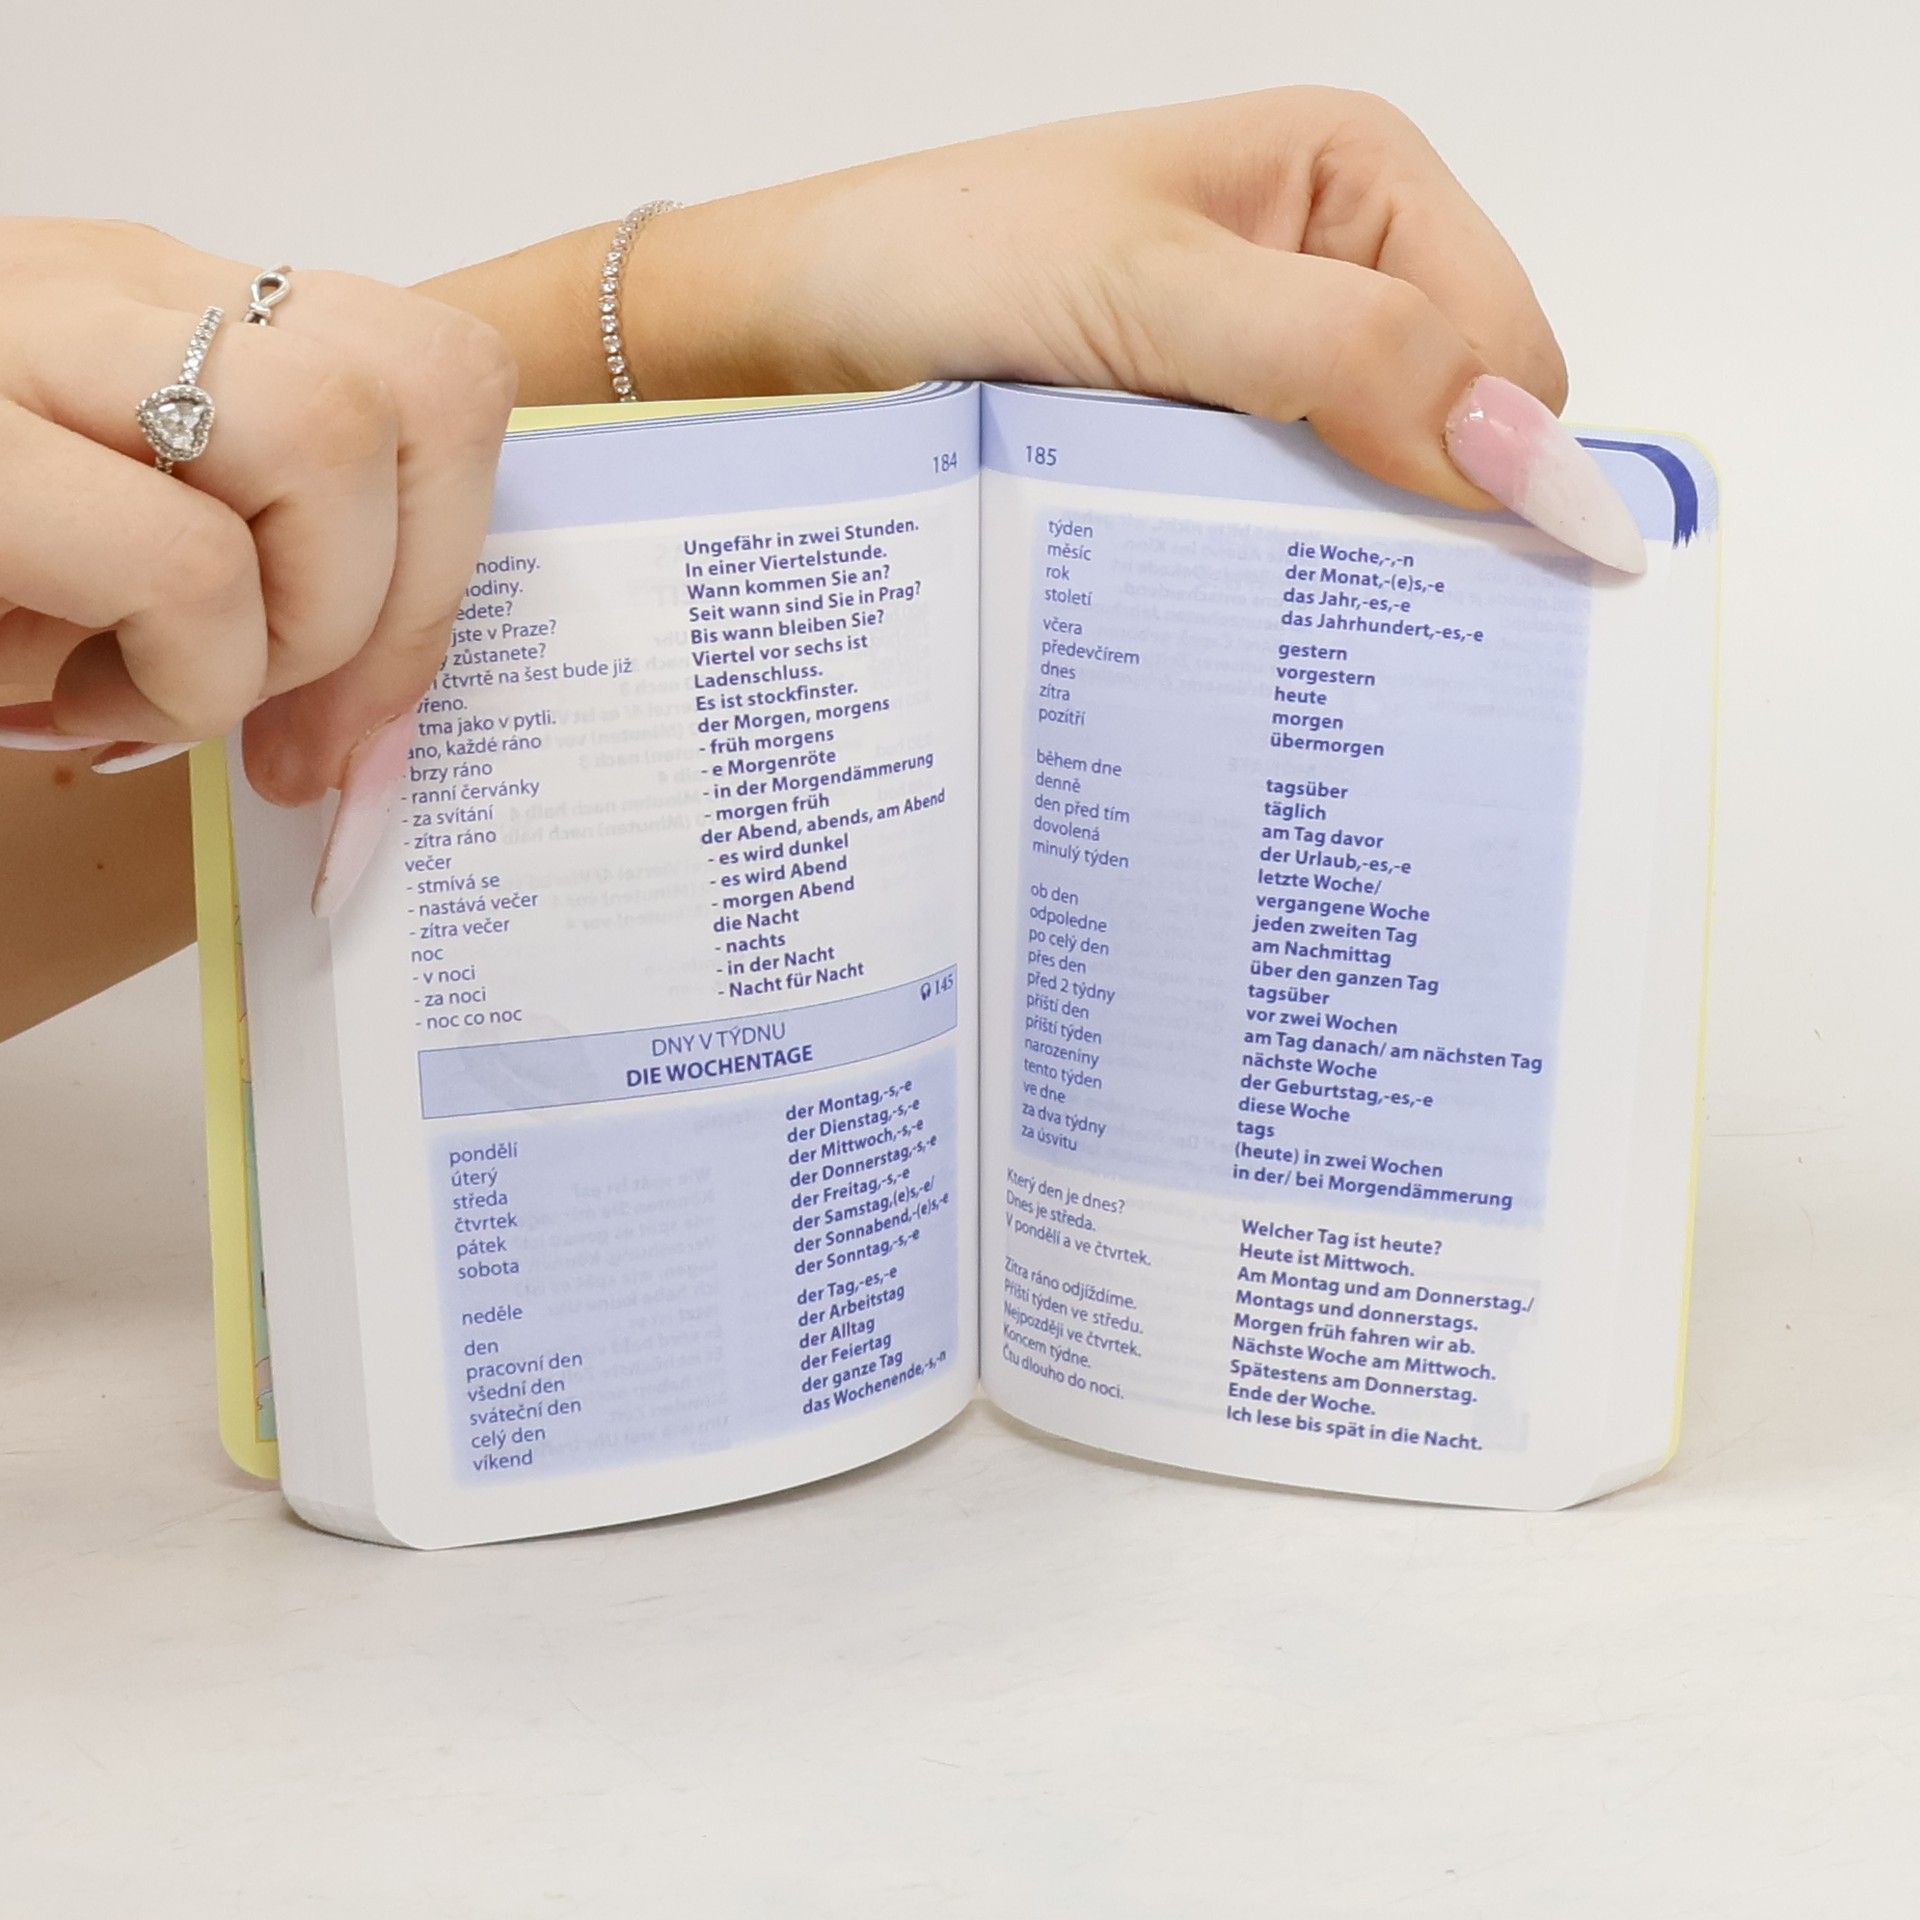 184
nodiny.
Ungefähr in zwei Stunden.
In einer Viertelstunde.
Wann kommen Sie an?
jste v Praze?
Seit wann sind Sie in Prag?
zůstanete?
Bis wann bleiben Sie?
čtvrtě na šest bude již
Viertel vor sechs ist
Ladenschluss.
tma jako v pytli.
Es ist stockfinster.
každé ráno
der Morgen, morgens
- brzy ráno
- früh morgens
- ranní červánky
- e Morgenröte
- za svítání
- in der Morgendämmerung
- zítra ráno
- morgen früh
večer
der Abend, abends, am Abend
- stmívá se
- es wird dunkel
- nastává večer
- es wird Abend
- zítra večer
- morgen Abend
noc
die Nacht
- v noci
- nachts
- za noci
- in der Nacht
- noc co noc
- Nacht für Nacht
145
DNY V TÝDNU
DIE WOCHENTAGE
pondělí
der Montag,-s,-e
úterý
der Dienstag,-s,-e
středa
der Mittwoch,-s,-e
čtvrtek
der Donnerstag,-s,-e
pátek
der Freitag,-s,-e
sobota
der Samstag,(e)s,-e/
der Sonnabend,-(e)s,-e
neděle
der Sonntag,-s,-e
den
der Tag,-es,-e
pracovní den
der Arbeitstag
všední den
der Alltag
sváteční den
der Feiertag
celý den
der ganze Tag
víkend
das Wochenende,-s,-n
185
týden
die Woche,-,-n
měsíc
der Monat,-(e)s,-e
rok
das Jahr,-es,-e
století
das Jahrhundert,-es,-e
včera
gestern
předevčírem
vorgestern
dnes
heute
zítra
morgen
pozítří
übermorgen
během dne
tagsüber
denně
täglich
den před tím
am Tag davor
dovolená
der Urlaub,-es,-e
minulý týden
letzte Woche/
vergangene Woche
ob den
jeden zweiten Tag
odpoledne
am Nachmittag
po celý den
über den ganzen Tag
přes den
tagsüber
před 2 týdny
vor zwei Wochen
příští den
am Tag danach/ am nächsten Tag
příští týden
nächste Woche
narozeniny
der Geburtstag,-es,-e
tento týden
diese Woche
ve dne
tags
za dva týdny
(heute) in zwei Wochen
za úsvitu
in der/ bei Morgendämmerung
Který den je dnes?
Welcher Tag ist heute?
Dnes je středa.
Heute ist Mittwoch.
V pondělí a ve čtvrtek.
Am Montag und am Donnerstag./
Montags und donnerstags.
Zítra ráno odjíždíme.
Morgen früh fahren wir ab.
Příští týden ve středu.
Nächste Woche am Mittwoch.
Nejpozději ve čtvrtek.
Spätestens am Donnerstag.
Koncem týdne.
Ende der Woche.
Čtu dlouho do noci.
Ich lese bis spät in die Nacht.